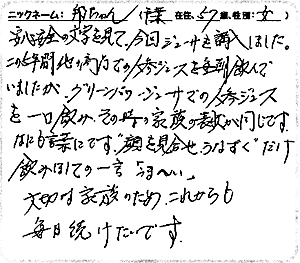 ニックネーム：ゆうちゃん（千葉 在住、57歳、性別：女）
安心安全の文字を見て、今回ジューサーを購入しました。
この5年間他の市内での人参ジュースを毎朝飲んで
いましたが、グリーンパワージューサーでの人参ジュース
を一口飲み、その時の家族の表情が同じです。
なにも言葉にです"顔を見合せ、うなずく"だけ
飲みほしての一言「うま〜い」
大切な家族のため、これからも
毎日続けたいです。